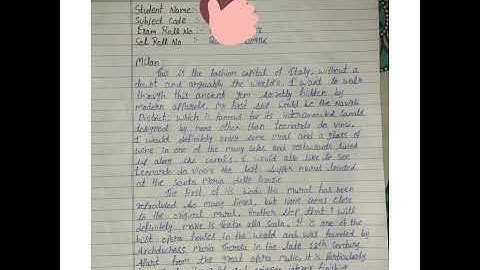 Student Name:
Subject Code
Exam Roll No :-
Col Roll No
Milan
This is the fashion capital of Italy, without a
doubt and arguably the world's. I want to walk
through this ancient gem sorably hidden by
modern My first stop would be the Navigli
District, which is famous for its interconnected canals
designed by none other than Leonardo da Vinci.
I would definitely enjoy some meal and a glass of
wine in one of the many cafes and restaurants lined
up along the canals. I would also like to see
Leonardo da Vinci's the last supper mural located
at the Santa Maria delle
The first of its kind, the mural has been
reproduced so many times, but none come close
to the original mural. Another stop that I will
definitely make is teatro alla scala. It is one of the
best opera houses in the world and was founded by
Archduchess Maria Theresa in the late 18th century.
Apart from the great opera music, it is particularly